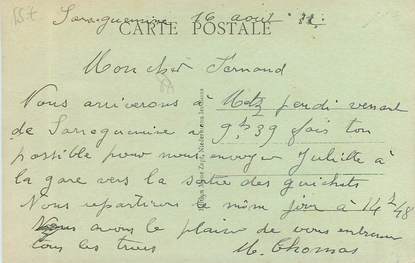 Sarreguemine 16 août
CARTE POSTALE
Mon cher Fernand
Nous arriverons à Metz jeudi venant
de Sarreguemine à 9h39 fais ton
possible pour nous envoyer Juliette à
la gare vers la sortie des guichets
Nous repartirons le même jour à 14h48
Nous avons le plaisir de vous embrasser
tous les trois
M. Thomas